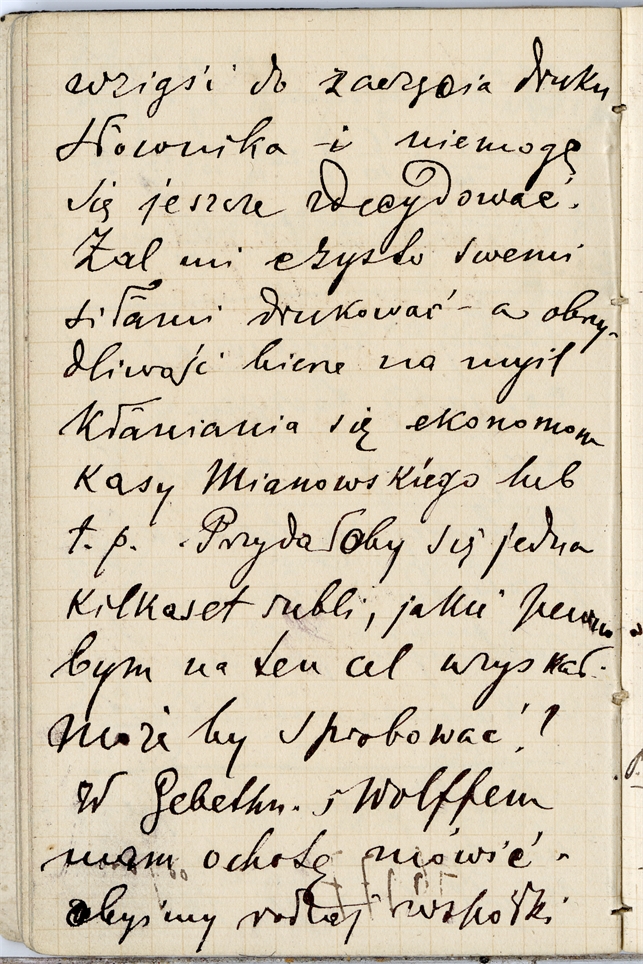 wziąść do zaczęcia druku
Słownika - i niemogę
się jeszcze zdecydować.
Żal mi czysto swemi
siłami drukować - a obrzy-
dliwość bierze na myśl
kłaniania się ekonomom
Kasy Mianowskiego lub
t. p. Przydałoby się jedna
kilkaset rubli, jakie pewno
bym na ten cel uzyskał.
Może by spróbować!
W Gebethn. i Wolffem
mam ochotę mówić -
abyśmy rodzaj wspołki